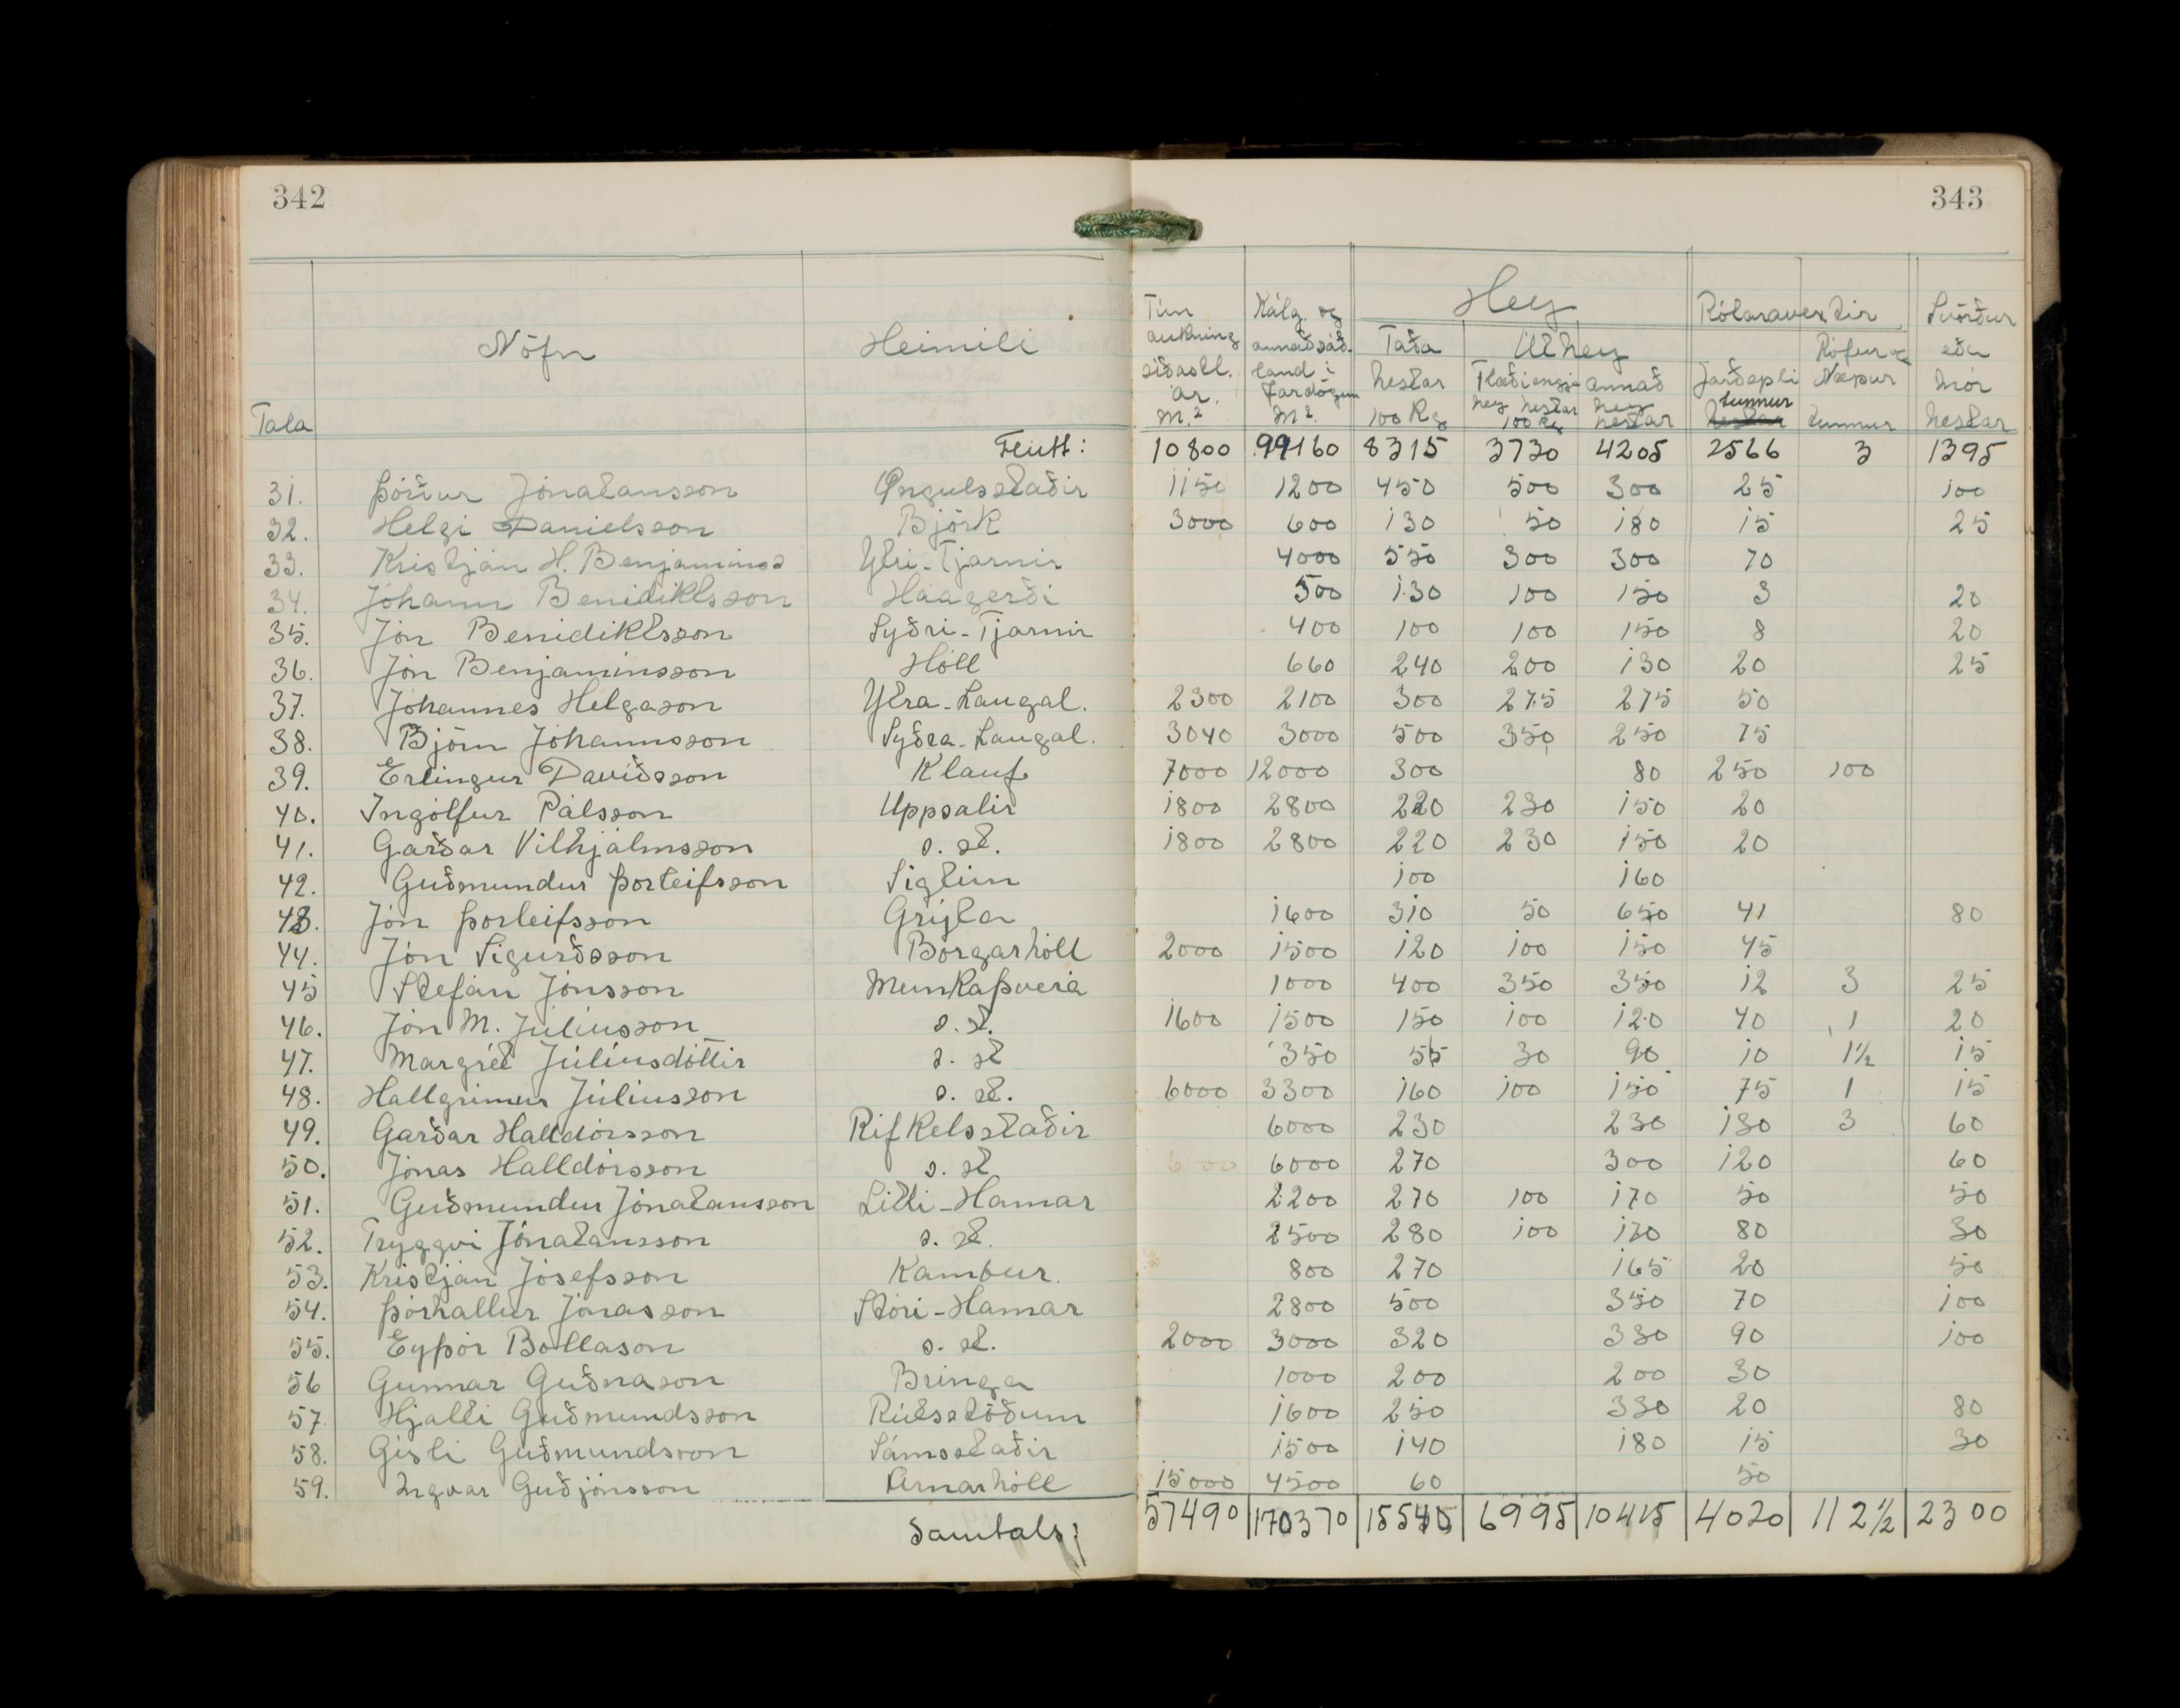 342
343
Hey
Nöfn Heimili
Tala
Tún aukning síðastl. ár. m.²
Kálg. og annað sáðland í fardögum m².
Taða hestar 100 Kg
Úthey
Flæðiengja hey hestar 100 Kg
annað hey hestar
Rótaravextir
Jarðepli tunnur
Rófur og Næpur tunnur
Svörður eða mór hestar
Flutt: 10800 99160 8315 3730 4205 2566 3 1395
31. Þórður Jónatansson Öngulsstaðir 1150 1200 450 500 300 25 100
32. Helgi Danielsson Björk 3000 600 130 50 180 15 25
33. Kristján H. Benjamínss Ytri-Tjarnir 4000 550 300 300 70
34. Jóhann Benidiktsson Háagerði 500 130 100 150 3 20
35. Jón Benidiktsson Syðri-Tjarnir 400 100 100 150 8 20
36. Jón Benjamínsson Hóll 660 240 200 130 20 25
37. Jóhannes Helgason Ytra-Laugal. 2300 2100 300 275 275 50
38. Björn Jóhannsson Syðra-Laugal. 3040 3000 500 350 250 75
39. Erlingur Davíðsson Klauf 7000 12000 300 80 250 100
40. Ingólfur Pálsson Uppsalir 1800 2800 220 230 150 20
41. Garðar Vilhjálmsson s. st. 1800 2800 220 230 150 20
42. Guðmundur Þorleifsson Sigtún 100 160
43. Jón Þorleifsson Grýta 1600 310 50 650 41 80
44. Jón Sigurðsson Borgarhóll 2000 1500 120 100 150 45
45 Stefán Jónsson Munkaþverá 1000 400 350 350 12 3 25
46. Jón M. Júlíusson s. st. 1600 1500 150 100 120 40 1 20
47. Margrét Júlíusdóttir s. st 350 55 30 90 10 1½ 15
48. Hallgrímur Júlíusson s. st. 6000 3300 160 100 150 75 1 15
49. Garðar Halldórsson Rifkelsstaðir 6000 230 230 130 3 60
50. Jónas Halldórsson s. st 6000 270 300 120 60
51. Guðmundur Jónatansson Litli-Hamar 2200 270 100 170 50 50
52. Tryggvi Jónatansson s. st. 2500 280 100 130 80 30
53. Kristján Jósefsson Kambur. 800 270 165 20 50
54. Þórhallur Jónasson Stóri-Hamar 2800 500 350 70 100
55. Eyþór Bollason s. st. 2000 3000 320 330 90 100
56 Gunnar Guðnason Bringa 1000 200 200 30
57. Hjalti Guðmundsson Rútsstöðum 1600 250 330 20 80
58. Gísli Guðmundsson Sámsstaðir 1500 140 180 15 30
59. Ingvar Guðjónsson Arnarhóll 15000 4500 60 50
Samtals: 57490 170370 15545 6995 10415 4020 112½ 2300